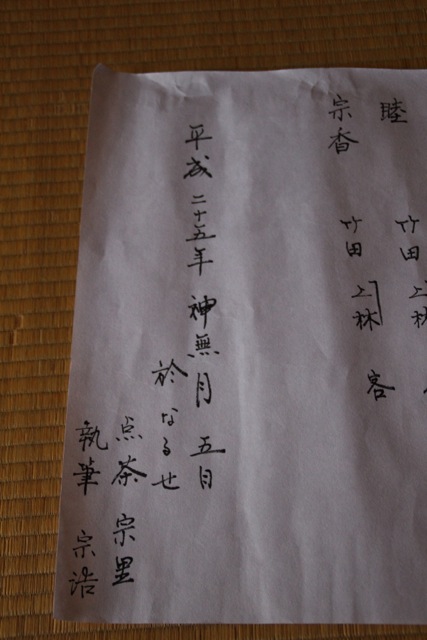 睦 竹田 上林
宗香 竹田 上林 客
平成二十五年 神無月 五日
於 なるせ
点茶 宗里
執筆 宗浩